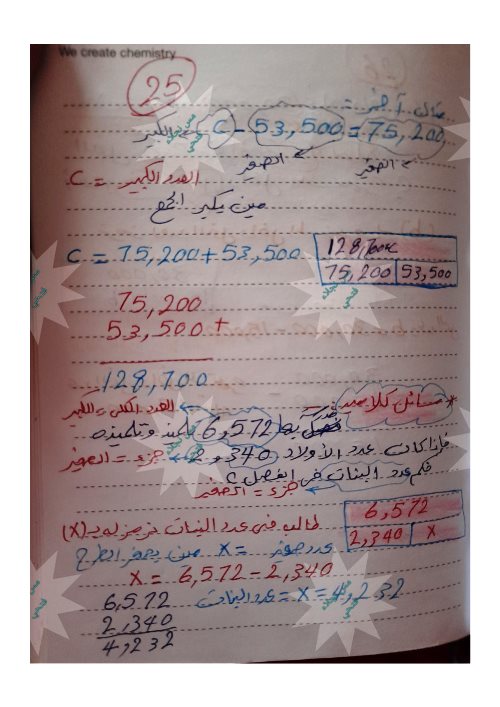 We create chemistry
25
مثال آخر =
C - 53,500 = 75,200
الكبير
الصغير
الصغير
العدد الكبير = C
مين يكبر الجمع
C = 75,200 + 53,500
128,700 = C
75,200 | 53,500
75,200
53,500 +
128,700
العدد الكلي = الكبير
* مسائل كلامية :-
مدرسة بها 6,572 تلميذ وتلميذه
فإذا كان عدد الأولاد 2,340
جزء = الصغير
فكم عدد البنات في الفصل ؟
جزء = الصغير
6,572
2,340 | X
طالب مني عدد البنات نرمز له بـ (X)
عدد صغير = X مين يصغر الطرح
X = 6,572 - 2,340
عدد البنات = X = 4,232
6,572
2,340
4,232